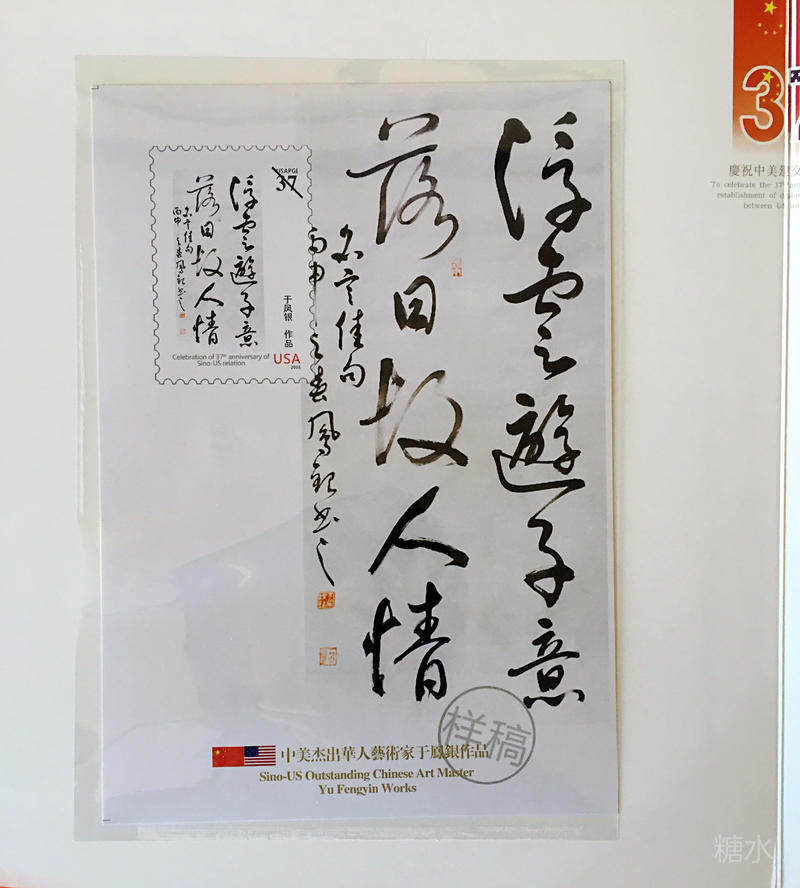 浮雲遊子意
落日故人情
名言佳句
丙申之春鳳銀書之
USAPGI
37
浮雲遊子意
落日故人情
名言佳句
丙申之春鳳銀書之
于凤银 作品
Celebration of 37th anniversary of
Sino-US relation
USA
2016
样稿
中美杰出華人藝術家于鳳銀作品
Sino-US Outstanding Chinese Art Master
Yu Fengyin Works
37
慶祝中美建交
To celebrate the 37th
establishment of
between US
糖水